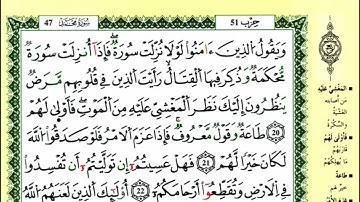 47 سورة محمد حزب 51
وَيَقُولُ الذِينَ ءَامَنُوا لَوْلَا نُزِّلَتْ سُورَةٌ فَإِذَا أُنزِلَتْ سُورَةٌ
مُّحْكَمَةٌ وَذُكِرَ فِيهَا الْقِتَالُ رَأَيْتَ الذِينَ فِي قُلُوبِهِم مَّرَضٌ
يَنظُرُونَ إِلَيْكَ نَظَرَ الْمَغْشِيِّ عَلَيْهِ مِنَ الْمَوْتِ فَأَوْلَى لَهُمْ
20 طَاعَةٌ وَقَوْلٌ مَّعْرُوفٌ فَإِذَا عَزَمَ الَامْرُ فَلَوْ صَدَقُوا اللَّهَ
لَكَانَ خَيْرًا لَّهُمْ 21 فَهَلْ عَسِيتُمُ إِن تَوَلَّيْتُمُ أَن تُفْسِدُوا
فِي الَارْضِ وَتُقَطِّعُوا أَرْحَامَكُمُ 22 أُولَئِكَ الذِينَ لَعَنَهُمُ اللَّهُ
الْمَغْشِيِّ عَلَيْهِ
طَاعَةٌ
خير لهم